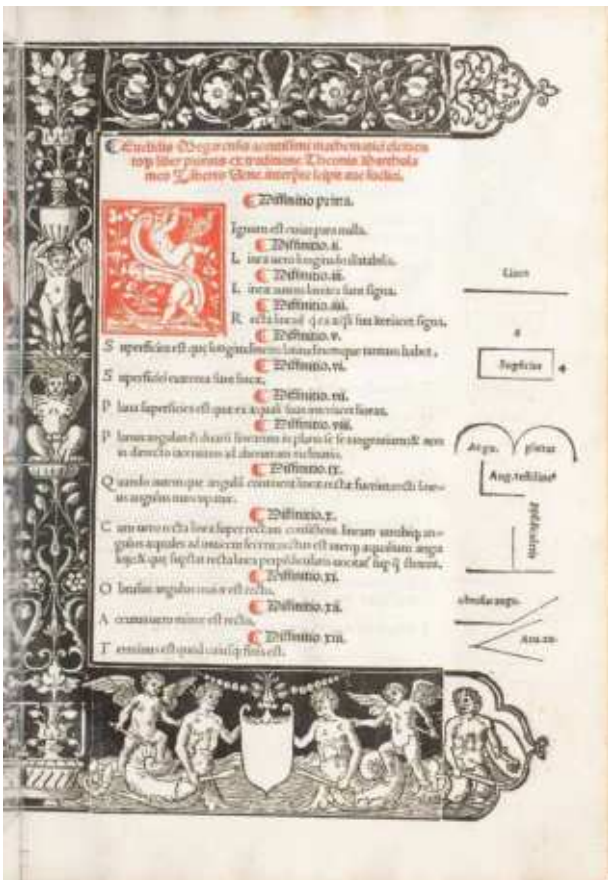 Euclidis Megarensis acutissimi mathematici elemen
torum liber primus ex traditione Theonis Bartholo
meo Zāberto Uene. interprete
Diffinitio prima.
Ignum est cuius pars nulla.
Diffinitio.ii.
L inea uero longitudo illatabilis.
Diffinitio.iii.
L ineæ autem limites sunt signa.
Diffinitio.iiii.
R ecta linea sua iteriacet signa.
Diffinitio.v.
S uperficies est que longitudinem latitudinemque tantum habet.
Diffinitio.vi.
S uperficiei extrema sunt lineæ.
Diffinitio.vii.
P lana superficies est que ex æquali suas interiacet lineas.
Diffinitio.viii.
P lanus angulus est duarū linearum in plano se se tangentium & non
in directo iacentium ad alterutram inclinatio.
Diffinitio.ix.
Q uando autem que angulū continent lineæ rectæ fuerint recti line-
us angulus nuncupatur.
Diffinitio.x.
C um uero recta linea super rectam consistens lineam utrobiq; an-
gulos æquales ad inuicem fecerit: rectus est uterq; æqualium angu
lorū: & que supstat recta linea perpēdicularis uocatur sup quā steterit.
Diffinitio.xi.
O btusus angulus maior est recto.
Diffinitio.xii.
A cutus uero minor est recto.
Diffinitio.xiii.
T erminus est quod cuiusq; finis est.
Linea
Supficies
Angu. planus
Ang. rectiline⁹
ppēdicularis
obtusus angu.
Acu. an.